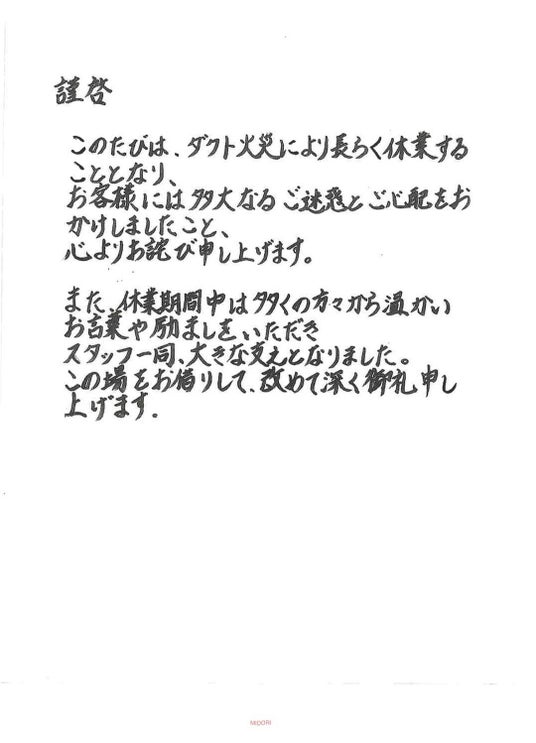 謹啓
このたびは、ダクト火災により長らく休業する
こととなり、
お客様には多大なるご迷惑とご心配をお
かけしましたこと、
心よりお詫び申し上げます。
また、休業期間中は多くの方々から温かい
お言葉や励ましをいただき
スタッフ一同、大きな支えとなりました。
この場をお借りして、改めて深く御礼申し
上げます.
MIDORI